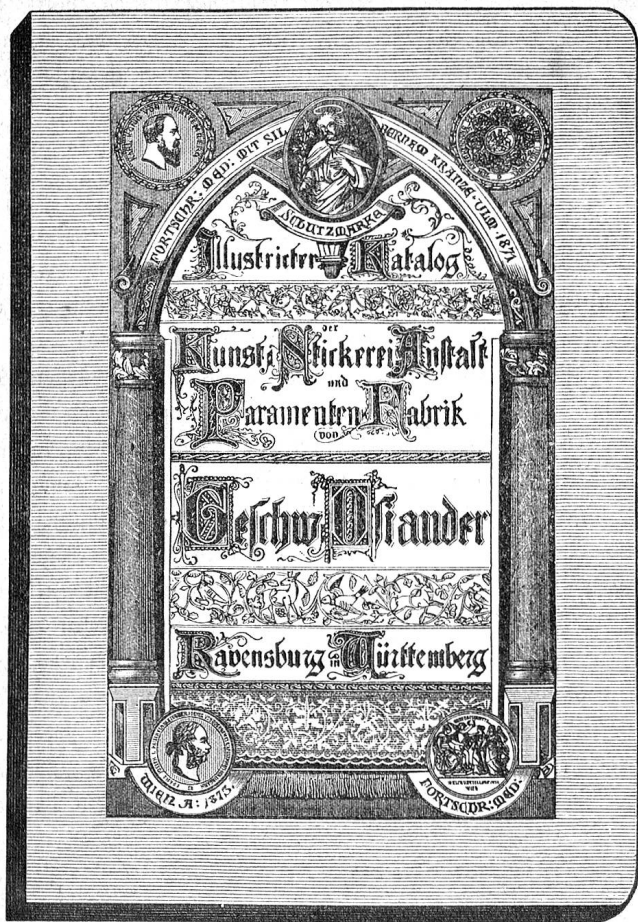 FORTSCHR: MED: MIT SILBERNEM KRANZE · ULM 1871
SCHUTZMARKE
Illustrirter Katalog
der
Kunst-Stickerei Anstalt
und
Paramenten Fabrik
von
Geschw. Osiander
Ravensburg in Württemberg
WIEN A: 1873.
FORTSCHR: MED: